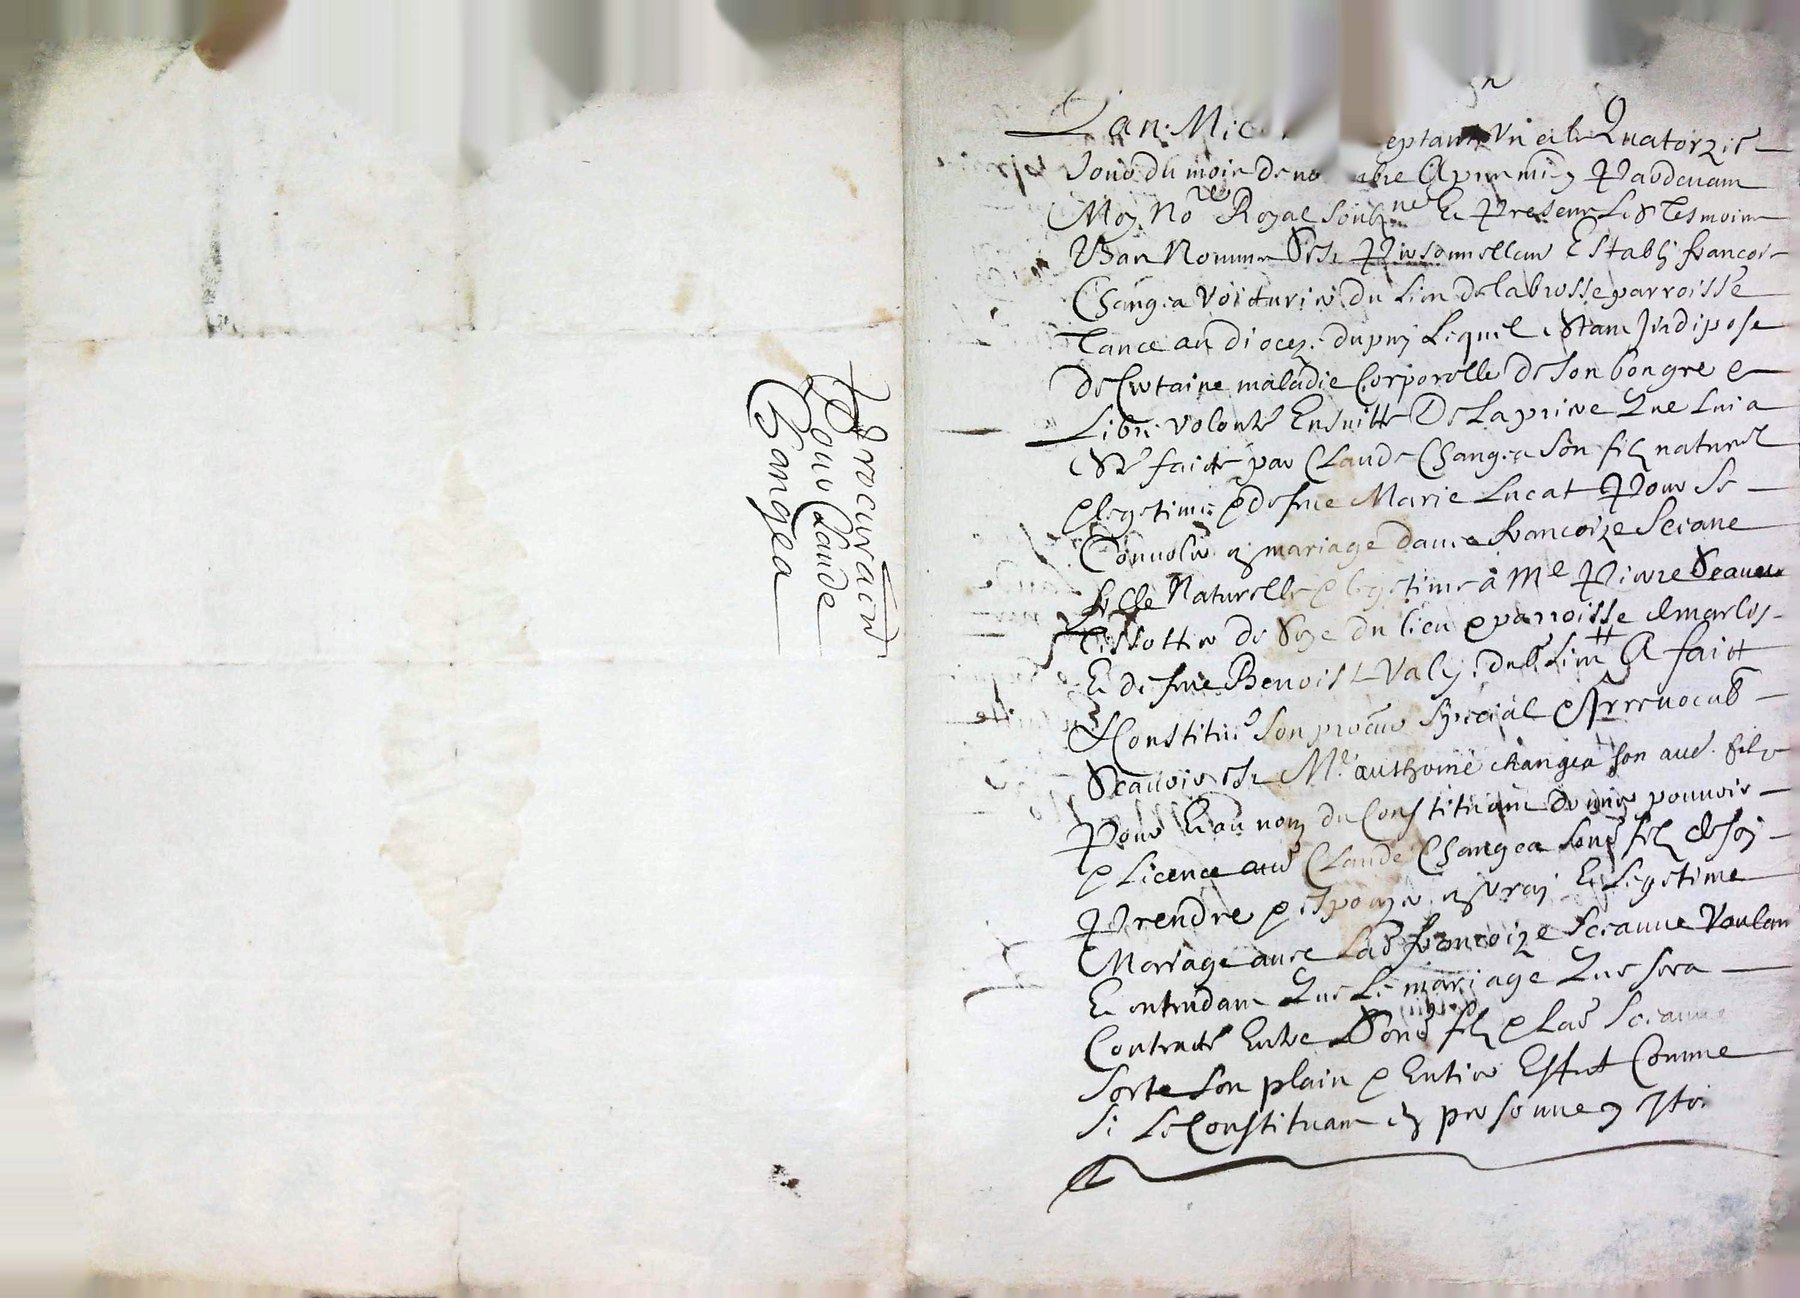 Procura͞on
Pour Claude
Changea
Lan Mic eptante Un et le Quatorzie
Jour du mois de no bre Apres midy Pardevant
Moy No.re Royal soub.né Et Presens Les Tesmoins
Bas Nommes Personnellem Estably francois
Changea Voiturier du Lieu de labrosse parroisse
Tance au dioceze dupuy Lequel Estant Indipose
de Certaine maladie Corporelle de son bon gre e
Libre volonte Ensuitte De La priere Que Luia
Este faicte par Claude Changea son filz naturel
e legetime e de feue Marie Lucat Pour se
Convoler en mariage avec francoize
fille Naturelle e legetime a Me Pierre
de du lieu e parroisse de marles
Et de feue Benoist Valy dud Lieu A faict
Constitue son procur special e Irrevocab
Scavoir Est Me anthoine changea son aud filz
Pour Et au nom du Constituant Donner pouvoir
e Licence aud Claude Changea sond filz de soy
Prendre e Espouzer en vray Et Legetime
Mariage avec Lad francoize Voulan
Et entendant Que Le mariage Que sera
Contracte Entre Sond filz e Lad
sorte son plain e Entier Effect Comme
si Le Constituant en personne y